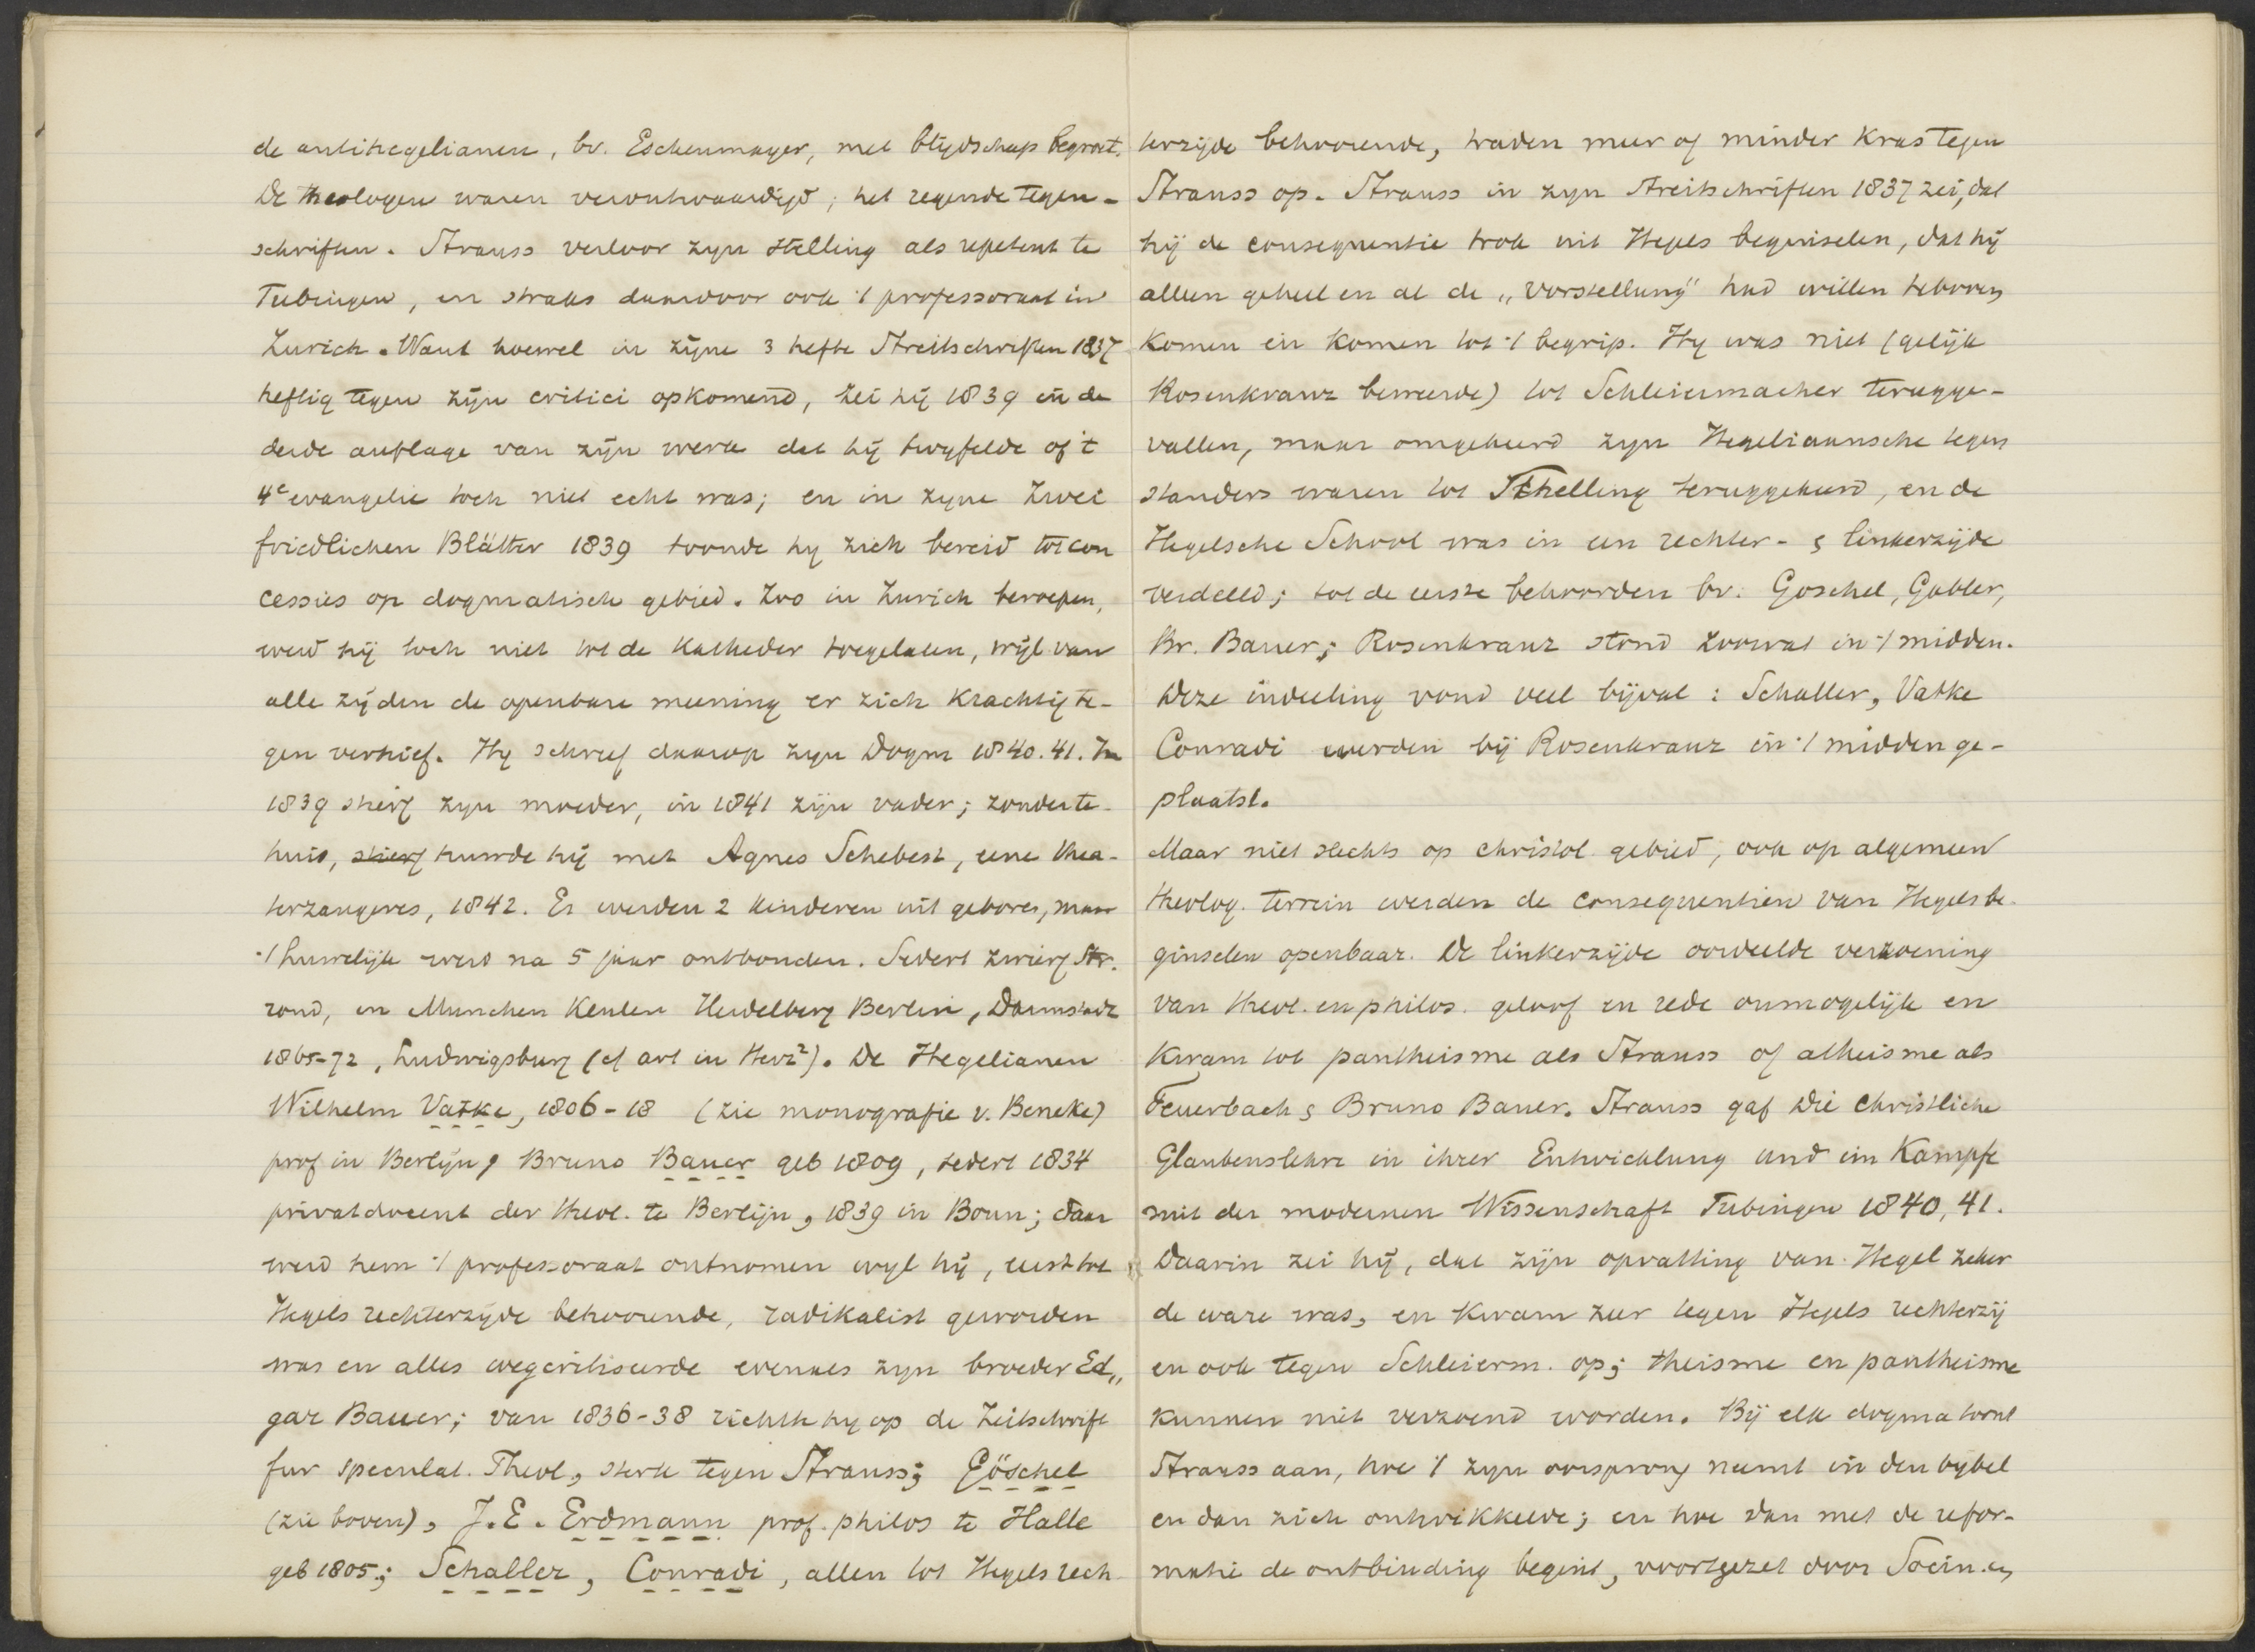 de antihegelianen, bv. Eschenmayer, met blijdschap begroet.
De theologen waren verontwaardigd; het regende tegen-
schriften. Strauss verloor zijn stelling als repetent te
Tubingen, en straks daardoor ook 't professoraat in
Zurich. Want hoewel in zijne 3 hefte Streitschriften 1837
heftig tegen zijn critici opkomend, zei hij 1839 in de
derde auflage van zijn werk dat hij twyfelde of 't
4e evangelie toch niet echt was; en in zyne Zwei
friedlichen Blätter 1839 toonde hy zich bereid tot con
cessies op dogmatisch gebied. Zoo in Zurich beroepen,
werd hij toch niet tot de Katheder toegelaten, wijl van
alle zijden de openbare meening er zich krachtig te-
gen verhief. Hy schreef daarop zyn Dogm 1840.41. In
1839 stierf zyn moeder, in 1841 zijn vader; zonder te-
huis, stierf huwde hij met Agnes Schebest, eene thea-
terzangeres, 1842. Er werden 2 kinderen uit geboren, maar
't huwelijk werd na 5 jaar ontbonden. Sedert zwierf Str.
rond, in Munchen Keulen Heidelberg Berlin, Darmstadt
1865-72, Ludwigsburg (cf art in Herz²). De Hegelianen
Wilhelm Vatke, 1806-18 (zie monografie v. Beneke)
prof in Berlijn, Bruno Bauer geb 1809, sedert 1834
privatdocent der theol. te Berlijn, 1839 in Bonn; daar
werd hem 't professoraat ontnomen wyl hij, eerst tot
Hegels rechterzyde behoorende, radikalist geworden
was en alles wegcritiseerde evenals zyn broeder Ed„
gar Bauer; van 1836-38 richtte hy op de Zeitschrift
fur speculat. Theol, sterk tegen Strauss; Göschel
(zie boven), J.E. Erdmann prof. philos te Halle
geb 1805; Schaller, Conradi, allen tot Hegels rech
terzijde behoorende, traden meer of minder kras tegen
Strauss op. Strauss in zyn Streitschriften 1837 zei, dat
hij de consequentie trok uit Hegels beginselen, dat hij
alleen geheel en al de „Vorstellung" had willen teboven
komen en komen tot 't begrip. Hy was niet (gelijk
Rosenkranz beweerde) tot Schleiermacher terugge-
vallen, maar omgekeerd zyn Hegeliaansche tegen
standers waren tot Schelling teruggekeerd, en de
Hegelsche School was in een rechter- & linkerzijde
verdeeld; tot de eerste behoorden bv. Goschel, Gabler,
Br. Bauer; Rosenkranz stond zoowat in 't midden.
Deze indeeling vond veel bijval: Schaller, Vatke
Conradi werden bij Rosenkranz in 't midden ge-
plaatst.
Maar niet slechts op christol. gebied, ook op algemeen
theolog. terrein werden de consequentien van Hegels be-
ginselen openbaar. De linkerzijde oordeelde verzoening
van theol. en philos. geloof en rede onmogelijk en
kwam tot pantheisme als Strauss of atheisme als
Feuerbach & Bruno Bauer. Strauss gaf Die Christliche
Glaubenslehre in ihrer Entwicklung und im Kampfe
mit der modernen Wissenschaft Tubingen 1840,41.
Daarin zei hij, dat zijn opvatting van Hegel zeker
de ware was, en kwam zeer tegen Hegels rechterzij
en ook tegen Schleierm. op; theisme en pantheisme
kunnen niet verzoend worden. Bij elk dogma toont
Strauss aan, hoe 't zyn oorsprong neemt in den bybel
en dan zich ontwikkelde; en hoe dan met de refor-
matie de ontbinding begint, voortgezet door Socin. en